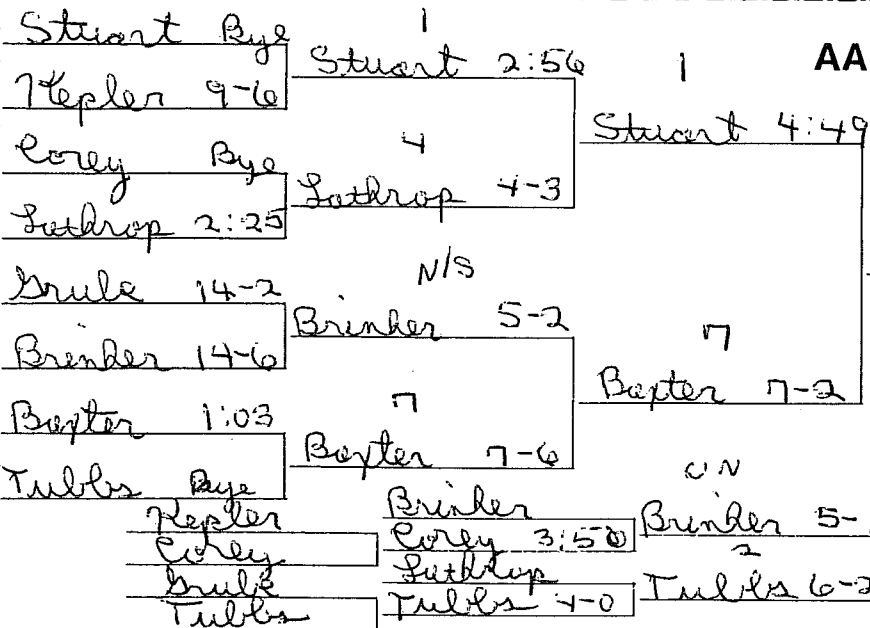 Stuart Bye
Kepler 9-6
Corey Bye
Lothrop 2:25
Grube 14-2
Brinker 14-6
Baxter 1:03
Tubbs Bye
1
Stuart 2:56
4
Lothrop 4-3
N/S
Brinker 5-2
7
Baxter 7-6
1
AA
Stuart 4:49
7
Baxter 7-2
Kepler
Corey
Grube
Tubbs
Brinker
Corey 3:50
Lothrop
Tubbs 4-0
UN
Brinker 5-
2
Tubbs 6-2